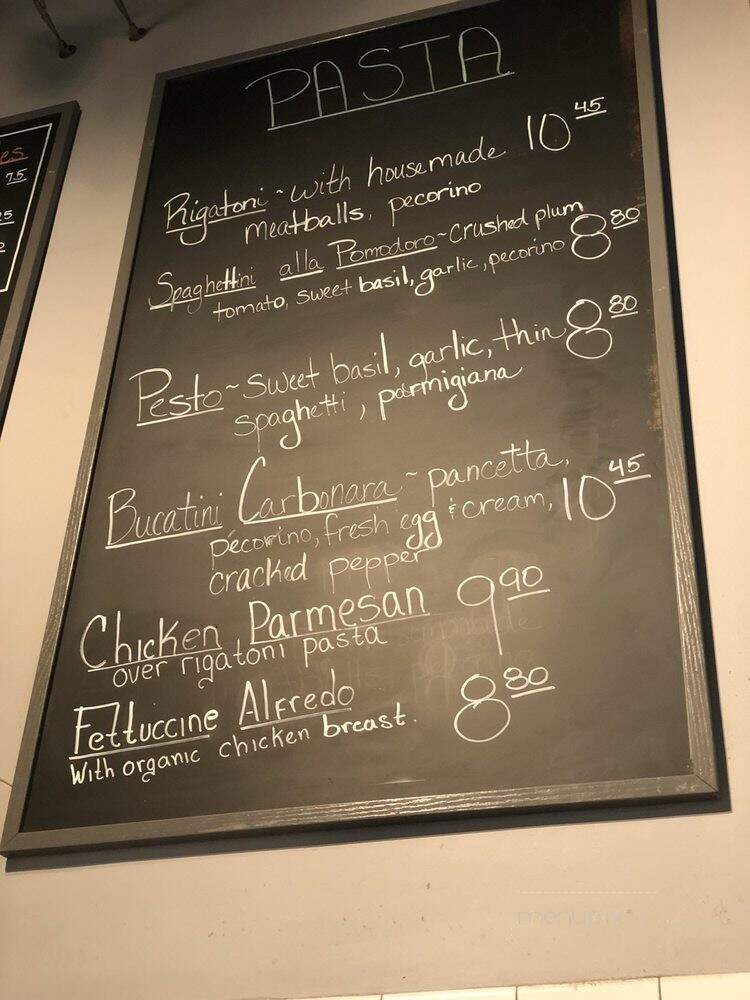 PASTA
Rigatoni ~ with housemade 10 45
meatballs, pecorino
Spaghettini alla Pomodoro ~ crushed plum
tomato, sweet basil, garlic, pecorino 8 80
Pesto ~ sweet basil, garlic, thin 8 80
spaghetti, parmigiana
Bucatini Carbonara ~ pancetta,
pecorino, fresh egg & cream, 10 45
cracked pepper
Chicken Parmesan 9 90
over rigatoni pasta
Fettuccine Alfredo 8 80
With organic chicken breast.
es
7.5